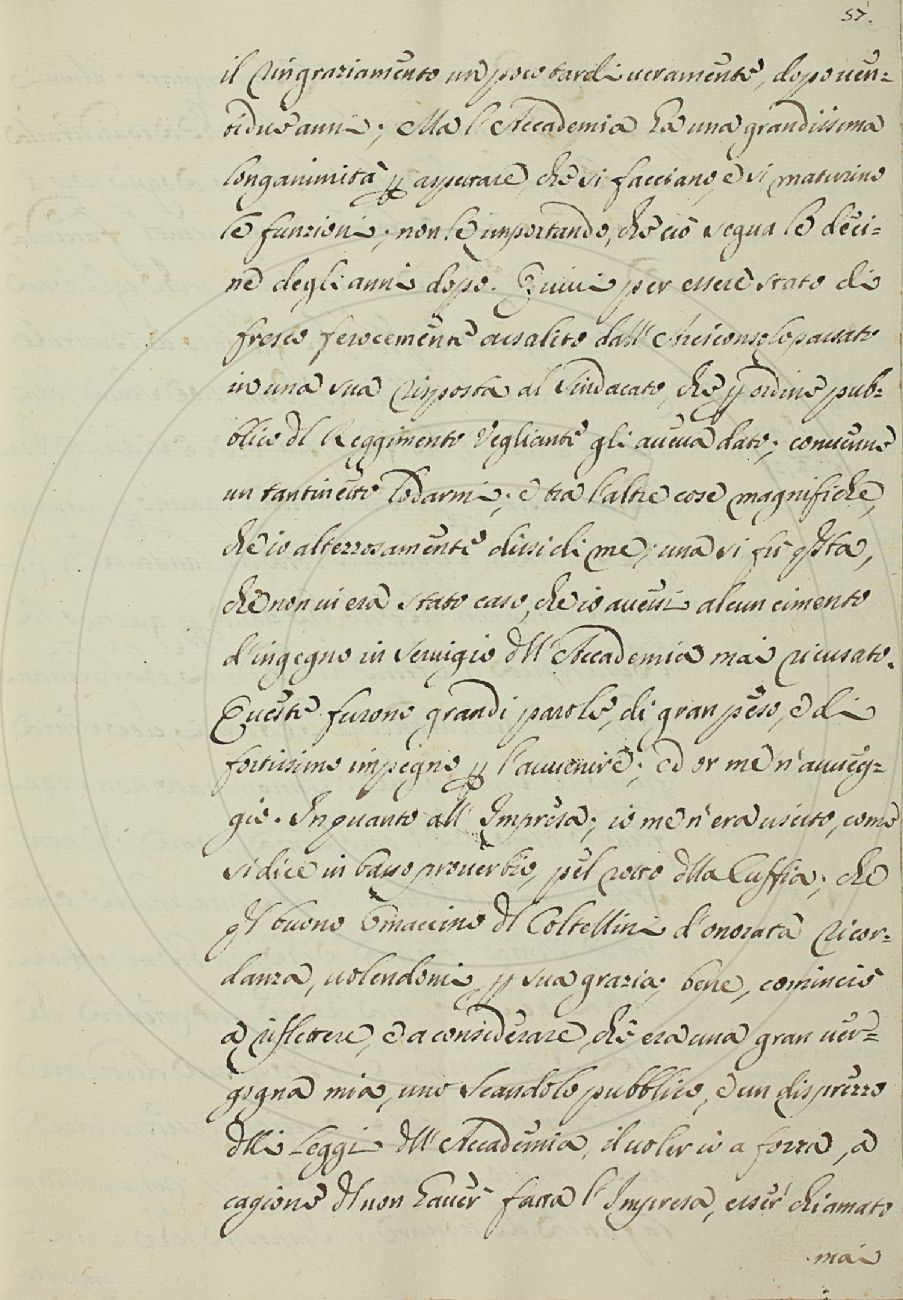 57.
il ringraziamento un poco tardi veramente, dopo ven=
tidue anni; Ma l'Accademia ha una grandissima
longanimità p aspettare, che si facciano, e si maturino
le funzioni; non le importando, che ciò segua le deci=
ne degli anni dopo. Quivi per essere stato di
fresco ferocemente assalito dall'Arciconsolo passato
in una sua risposta al Sindacato, che p ordine pub=
blico dl Reggimento Vegliante gli aveva dato; convenne
un tantinetto lodarmi; e tra l'altre cose magnifiche,
che io alterzosamente dissi di me, una si fù qsta,
che non vi era stato caso, che io avessi alcun cimento
d'ingegno in Servigio dll'Accademia mai ricusato.
Queste furono grandi parole, di gran peso, e di
fortissimo impegno p l'avvenire; ed or me n'avveg=
gio. In quanto all'Impresa; io me n'era uscito, come
si dice in basso proverbio, pel rotto dlla Cuffia; che
ql buono Omaccino dl Coltellini d'onorata ricor=
danza, volendomi p sua grazia, bene, cominciò
a riflettere, e a considerare, che era una gran ver=
gogna mia, uno Scandolo pubblico, e un disprezzo
dlli Leggi dll'Accademia, il voler io a forza, a
cagione dl non haver fatta l'Impresa, esser chiamato
mai